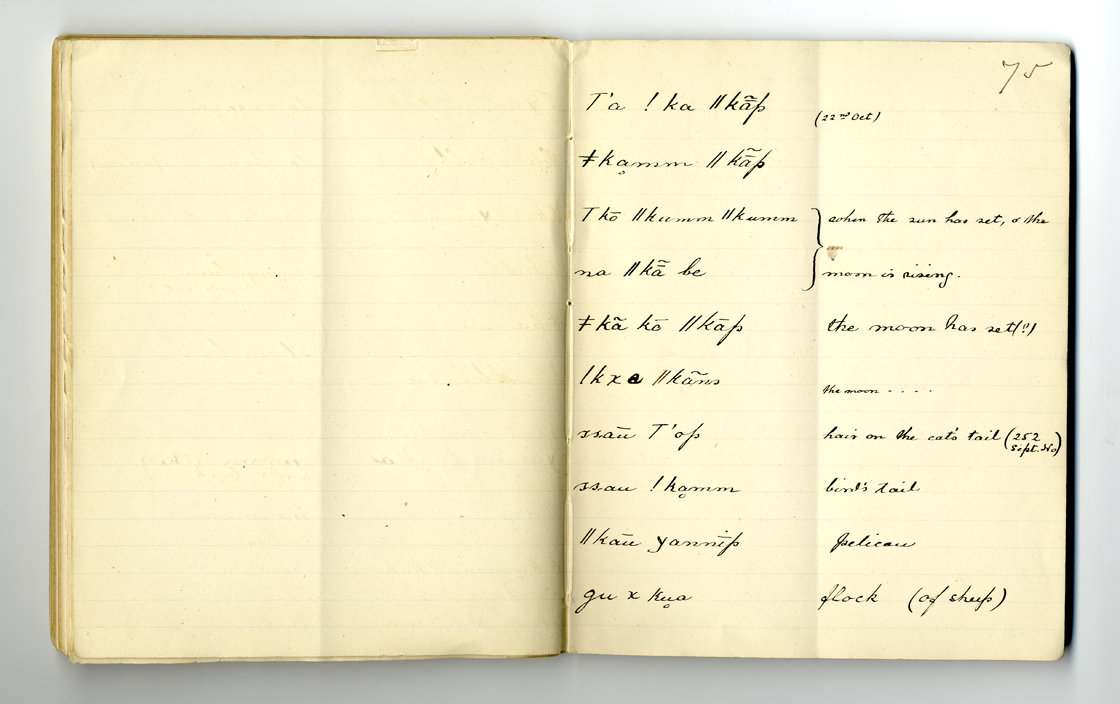 75
T'a ! ka ǁkã̄p (22nd Oct)
ǂkḁmm ǁkã̄p
T kō ǁkumm ǁkumm when the sun has set, & the
na ǁkã̄ be moon is rising.
ǂkã kō ǁkāp the moon has set(?)
ǀkxe ǁkãns the moon - - - -
ssāu T'op hair on the cat's tail (252 Sept. No)
ssau ! kḁmm bird's tail
ǁkāu yannīp pelican
gu x ku̥a flock (of sheep)